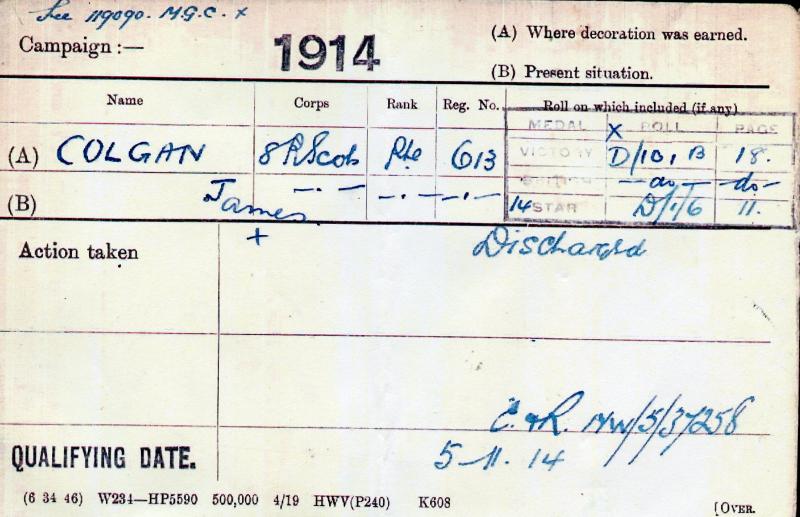 See 119090. M.G.C. x
Campaign :— 1914
(A) Where decoration was earned.
(B) Present situation.
Name Corps Rank Reg. No. Roll on which included (if any)
MEDAL X ROLL PAGE
(A) COLGAN 8 R Scots Pte 613 VICTORY D/101 B 18.
— . — — . — . — BRITISH — do — — do —
(B) James 14 STAR D/1/6 11.
Action taken + Discharged
E. & R. NW/5/37258
QUALIFYING DATE. 5-11.14
(6 34 46) W234—HP5590 500,000 4/19 HWV(P240) K608 [OVER.